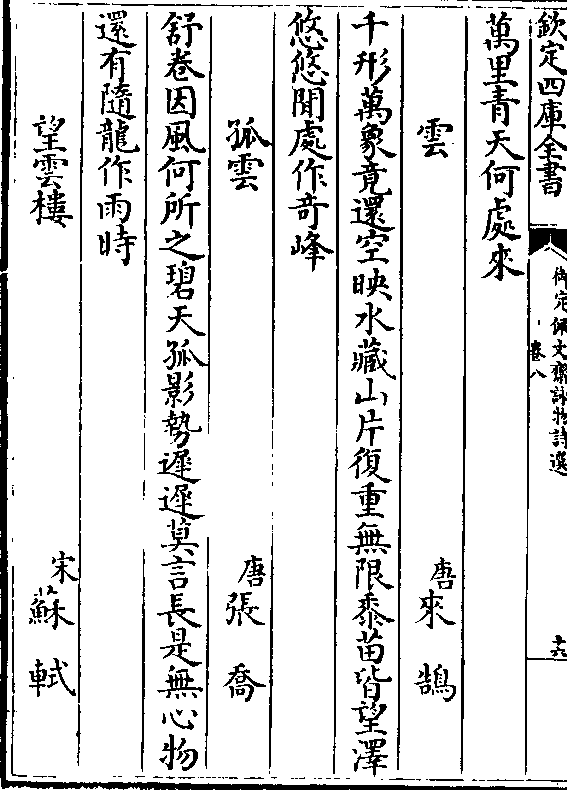 欽定四庫全書
御定佩文齋詠物詩選
卷八
十六
萬里青天何處來
雲
唐來鵠
千形萬象竟還空映水藏山片復重無限黍苗皆望澤
悠悠閒處作奇峰
孤雲
唐張喬
舒卷因風何所之碧天孤影勢遲遲莫言長是無心物
還有隨龍作雨時
望雲樓
宋蘇軾